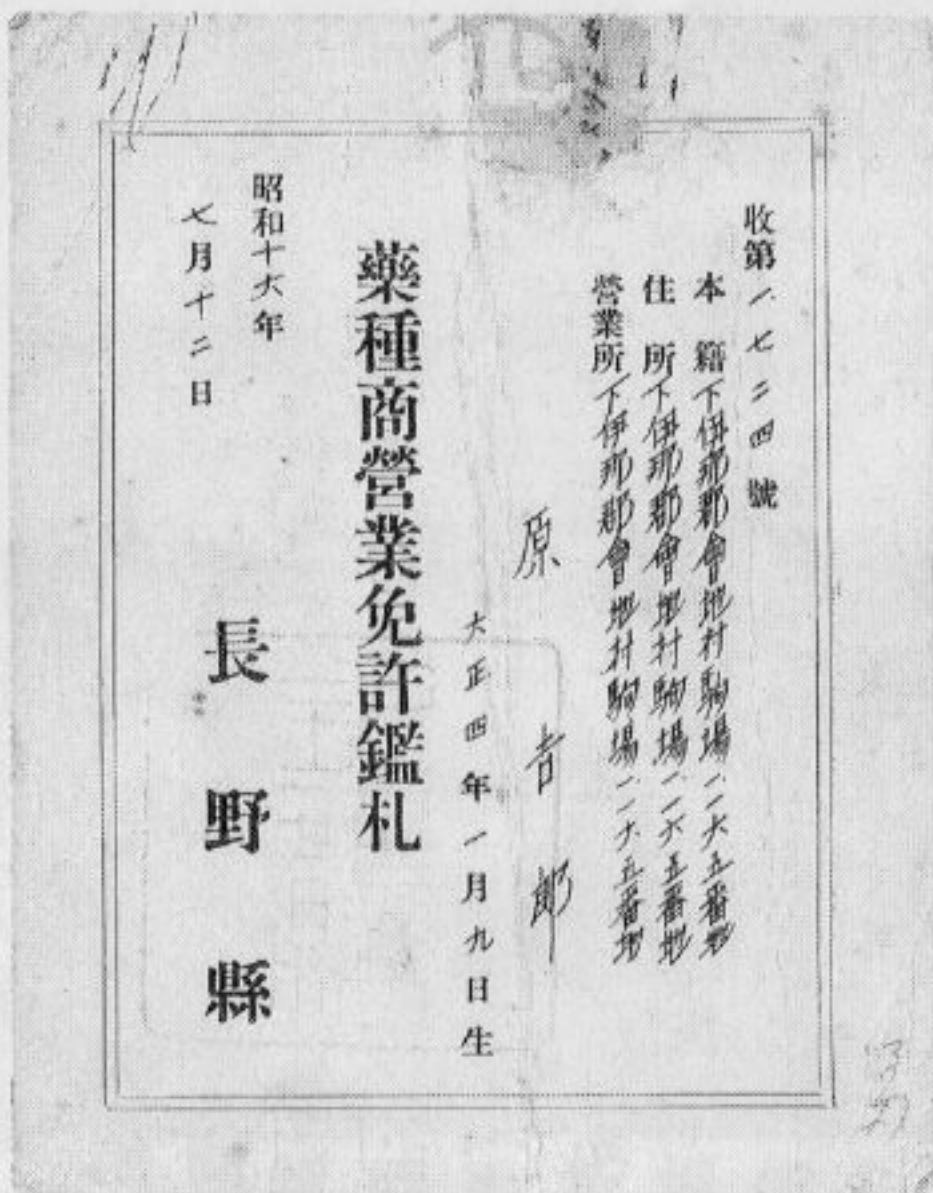 收第一七二四號
本籍下伊那郡會地村駒場一一六五番地
住所下伊那郡會地村駒場一一六五番地
營業所下伊那郡會地村駒場一一六五番地
原吉郎
大正四年一月九日生
藥種商營業免許鑑札
昭和十六年
七月十二日
長野縣